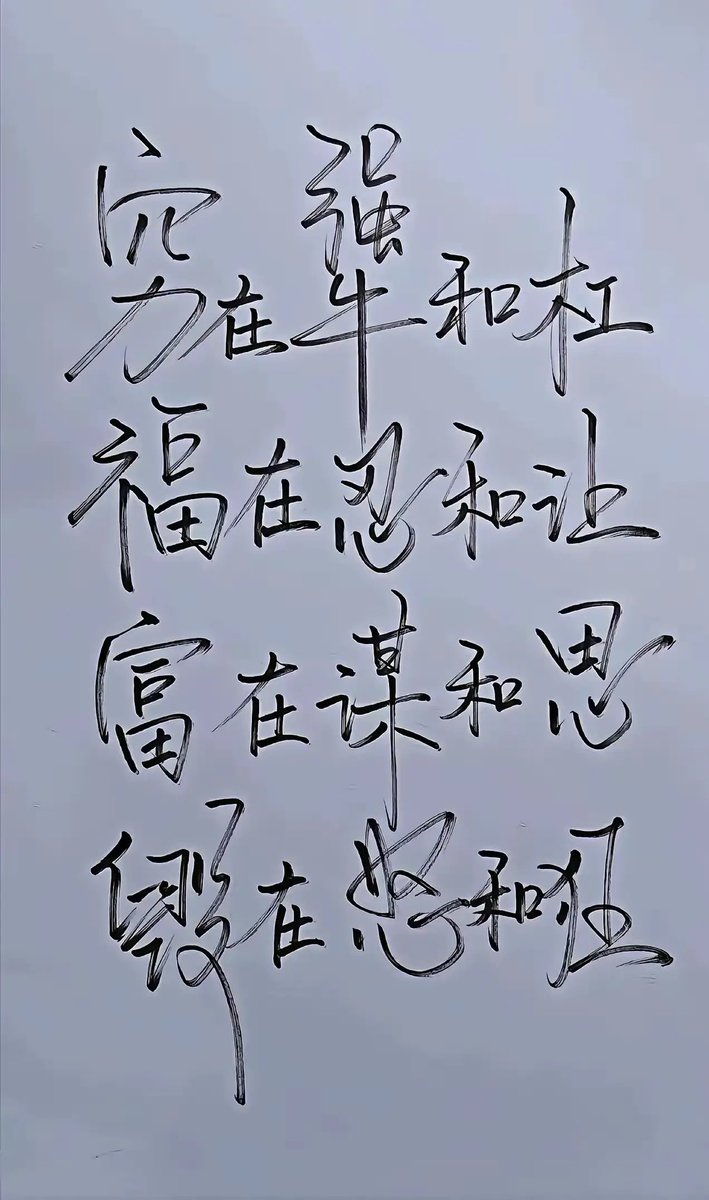 穷在犟和杠
福在忍和让
富在谋和思
毁在怒和狂